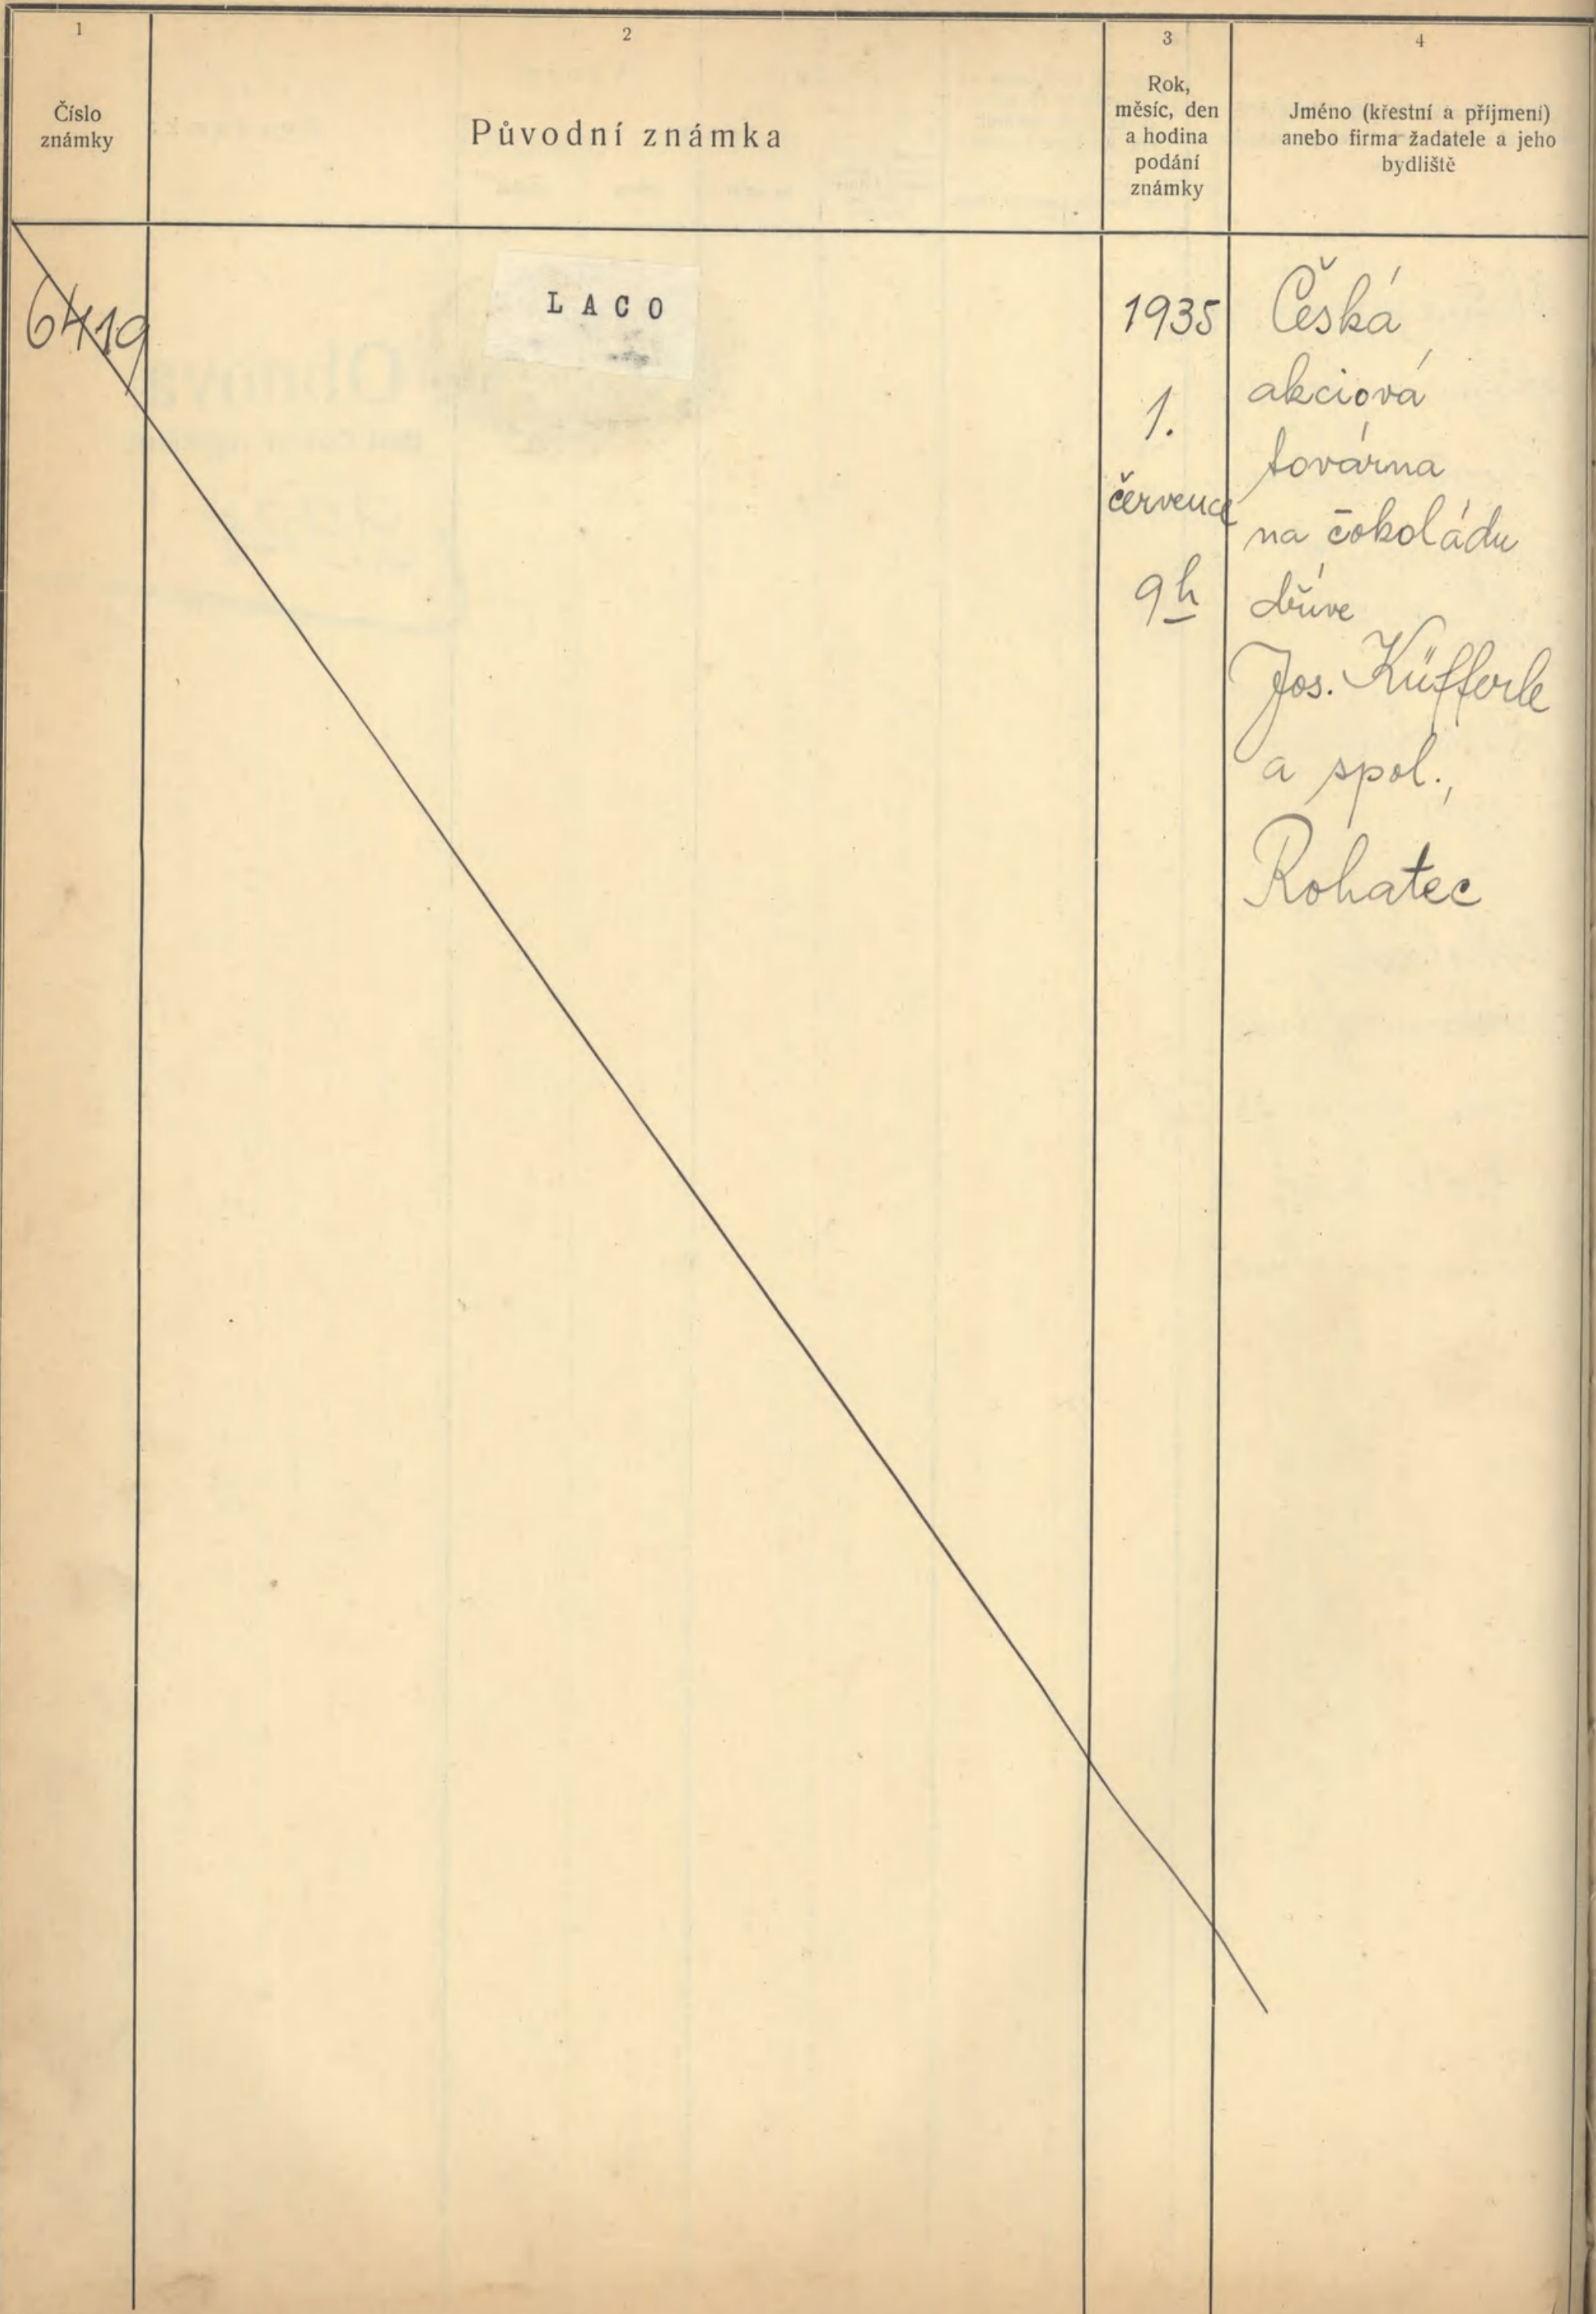 1
Číslo
známky
2
Původní známka
3
Rok,
měsíc, den
a hodina
podání
známky
4
Jméno (křestní a příjmení)
anebo firma žadatele a jeho
bydliště
6419
LACO
1935
1.
července
9h
Česká
akciová
továrna
na čokoládu
dříve
Jos. Küfferle
a spol.,
Rohatec